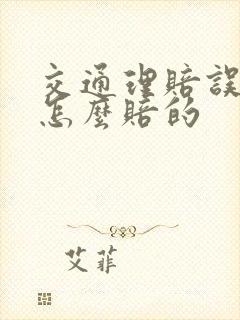 交通理賠誤
怎麼賠的
艾菲